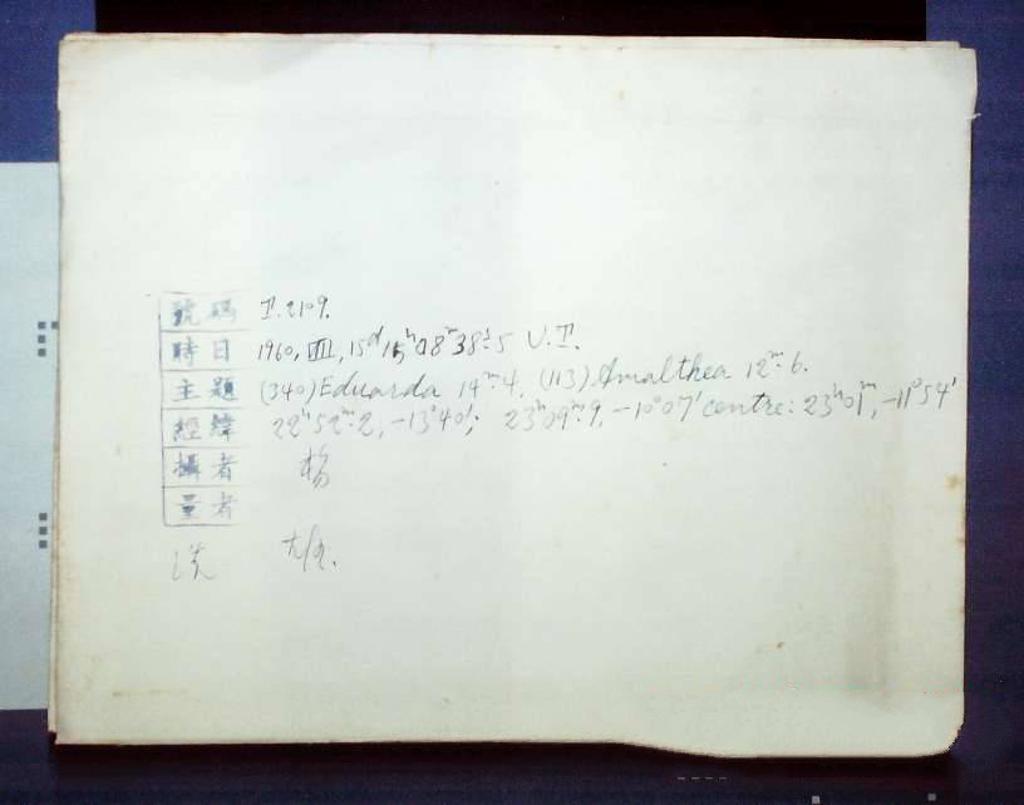 號碼 T.2109.
時日 1960, VIII, 15ᵈ 15ʰ 08ᵐ 38ˢ.5 U.T.
主題 (340) Eduarda 14ᵐ.4, (113) Amalthea 12ᵐ.6.
經緯 22ʰ52ᵐ.2, -13°40′; 23ʰ09ᵐ.9, -10°07′ centre: 23ʰ01ᵐ, -11°54′
攝者 楊
量者
洗